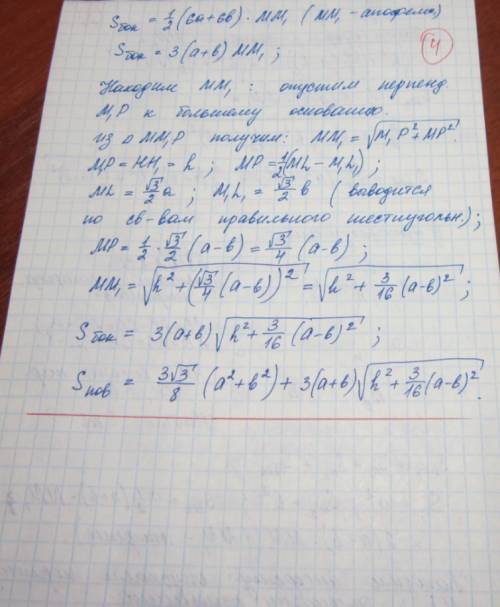 Sбок = 1/2 (6a+6b) · MM₁ (MM₁ - апофема)
Sбок = 3(a+b) MM₁ ;
4
Находим MM₁ : опустим перпенд
M₁P к большему основанию.
из Δ MM₁P получим: MM₁ = √(M₁P² + MP²)
M₁P = HH₁ = h ; MP = 1/2 (ML - M₁L₁) ;
ML = √3/2 a ; M₁L₁ = √3/2 b ( выводится
по св-вам правильного шестиугольн.) ;
MP = 1/2 · √3/2 (a-b) = √3/4 (a-b) ;
MM₁ = √(h² + (√3/4 (a-b))²) = √(h² + 3/16 (a-b)²) ;
Sбок = 3(a+b) √(h² + 3/16 (a-b)²) ;
Sпов = 3√3/8 (a² + b²) + 3(a+b) √(h² + 3/16 (a-b)²) .